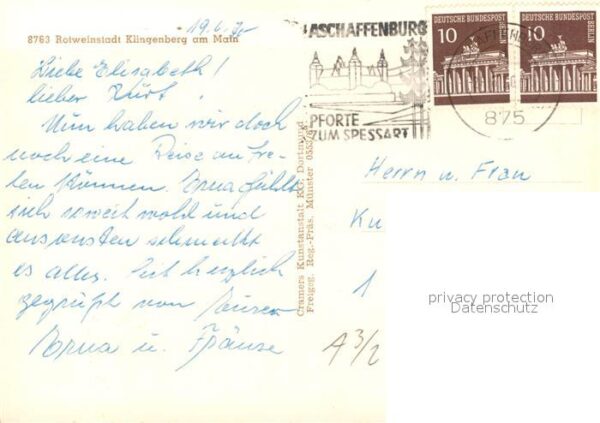 19.6.70
8763 Rotweinstadt Klingenberg am Main
Liebe Elisabeth!
lieber Kurt.
Nun haben wir doch
noch eine Reise antre-
ten können. Erna fühlt
sich soweit wohl und
ansonsten schmeckt
es alles. Seit herzlich
gegrüßt von Euren
Erna u. Fränze
Cramers Kunstanstalt KG, Dortmund
Freigeg. Reg.-Präs. Münster
ASCHAFFENBURG
PFORTE
ZUM SPESSART
DEUTSCHE BUNDESPOST BERLIN
10
DEUTSCHE BUNDESPOST BERLIN
10
875
Herrn u. Frau
Ku
1
A3/2
privacy protection
Datenschutz